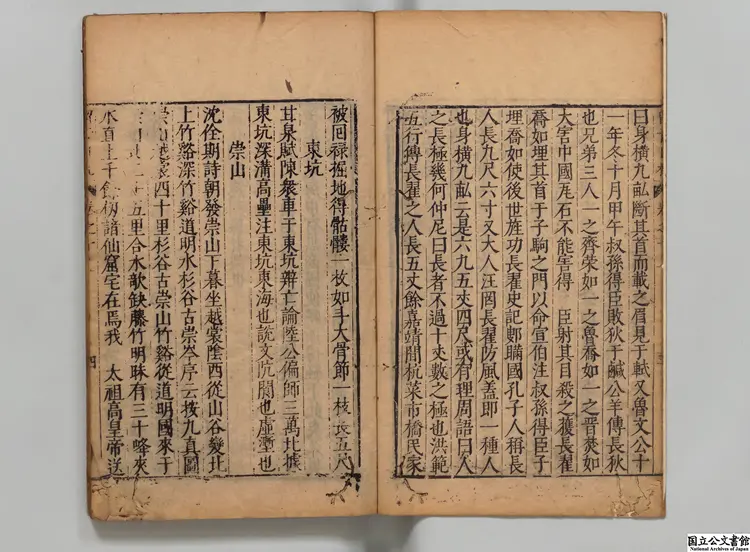 曰身横九畝斷其首而載之眉見于軾又魯文公十
一年冬十月甲午叔孫得臣敗狄于鹹公羊傳長狄
也兄弟三人一之齊榮如一之魯喬如一之晉焚如
大害中國瓦石不能害得臣射其目殺之獲長翟
喬如埋其首于子駒之門以命宣伯注叔孫得臣子
埋喬如使後世旌功長翟史記鄋瞞國孔子人稱長
人長九尺六寸又大人汪罔長翟防風蓋即一種人
也身横九畝云是六九五丈四尺或有理周語曰人
之長極幾何仲尼曰長者不過十丈數之極也洪範
五行傳長翟之人長五丈餘嘉靖間杭菜市橋民家
被回禄掘地得骷髏一枚如斗大骨節一枝長五尺
東坑
甘泉賦陳衆車于東坑辨亡論陸公偏師三萬北據
東坑深溝高壘注東坑東海也說文坑閬也虛壑也
崇山
沈佺期詩朝發崇山下暮坐越裳陰西從山谷變北
上竹谿深竹谿道明水杉谷古崇岑序云按九真圖
四十里杉谷古崇山竹谿從道明國來于
五里合水欹缺藤竹明昧有三十峰夾
水直上千餘仞諳仙窟宅在焉我 太祖高皇帝送
四
国立公文書館
National Archives of Japan